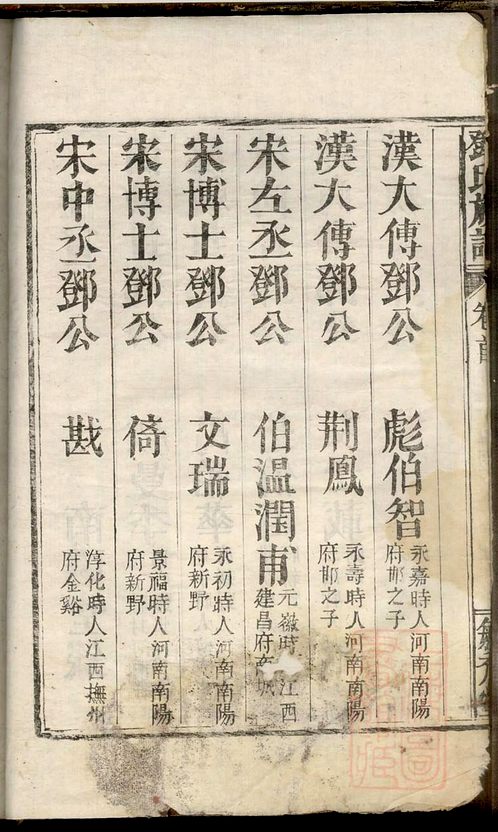 鄧氏族譜
卷首
漢大傅鄧公 彪伯智 永嘉時人河南南陽
府邯之子
漢大傅鄧公 荆鳳 永壽時人河南南陽
府邯之子
宋左丞鄧公 伯温潤甫 元徽時 江西
建昌府 城
宋博士鄧公 文瑞 永初時人河南南陽
府新野
宋博士鄧公 倚 景福時人河南南陽
府新野
宋中丞鄧公 戡 淳化時人江西撫州
府金谿